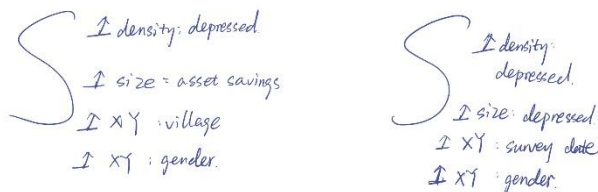 ↥ density: depressed
↥ size = asset savings
↥ XY : village
↥ XY : gender.
↥ density:
depressed.
↥ size: depressed
↥ XY : survey date
↥ XY : gender.